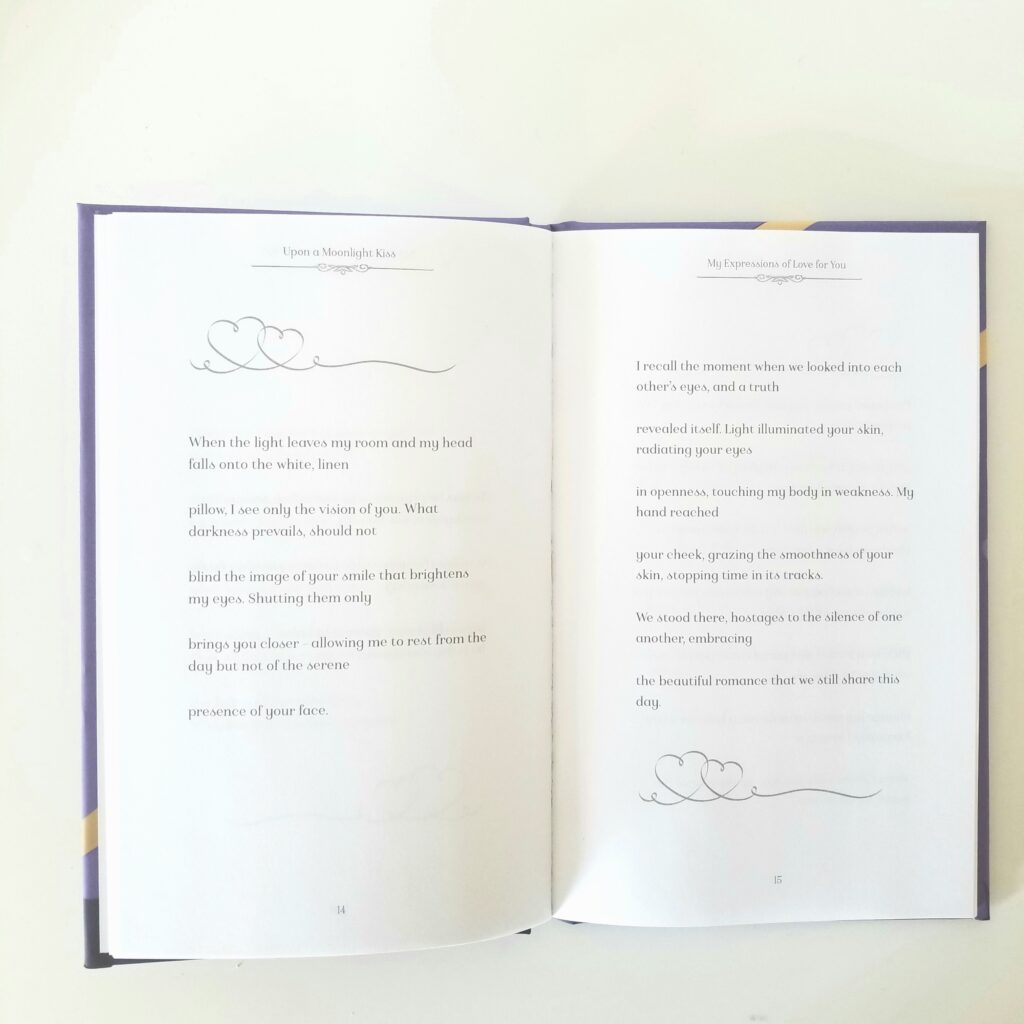 Upon a Moonlight Kiss
When the light leaves my room and my head
falls onto the white, linen
pillow, I see only the vision of you. What
darkness prevails, should not
blind the image of your smile that brightens
my eyes. Shutting them only
brings you closer - allowing me to rest from the
day but not of the serene
presence of your face.
14
My Expressions of Love for You
I recall the moment when we looked into each
other's eyes, and a truth
revealed itself. Light illuminated your skin,
radiating your eyes
in openness, touching my body in weakness. My
hand reached
your cheek, grazing the smoothness of your
skin, stopping time in its tracks.
We stood there, hostages to the silence of one
another, embracing
the beautiful romance that we still share this
day.
15